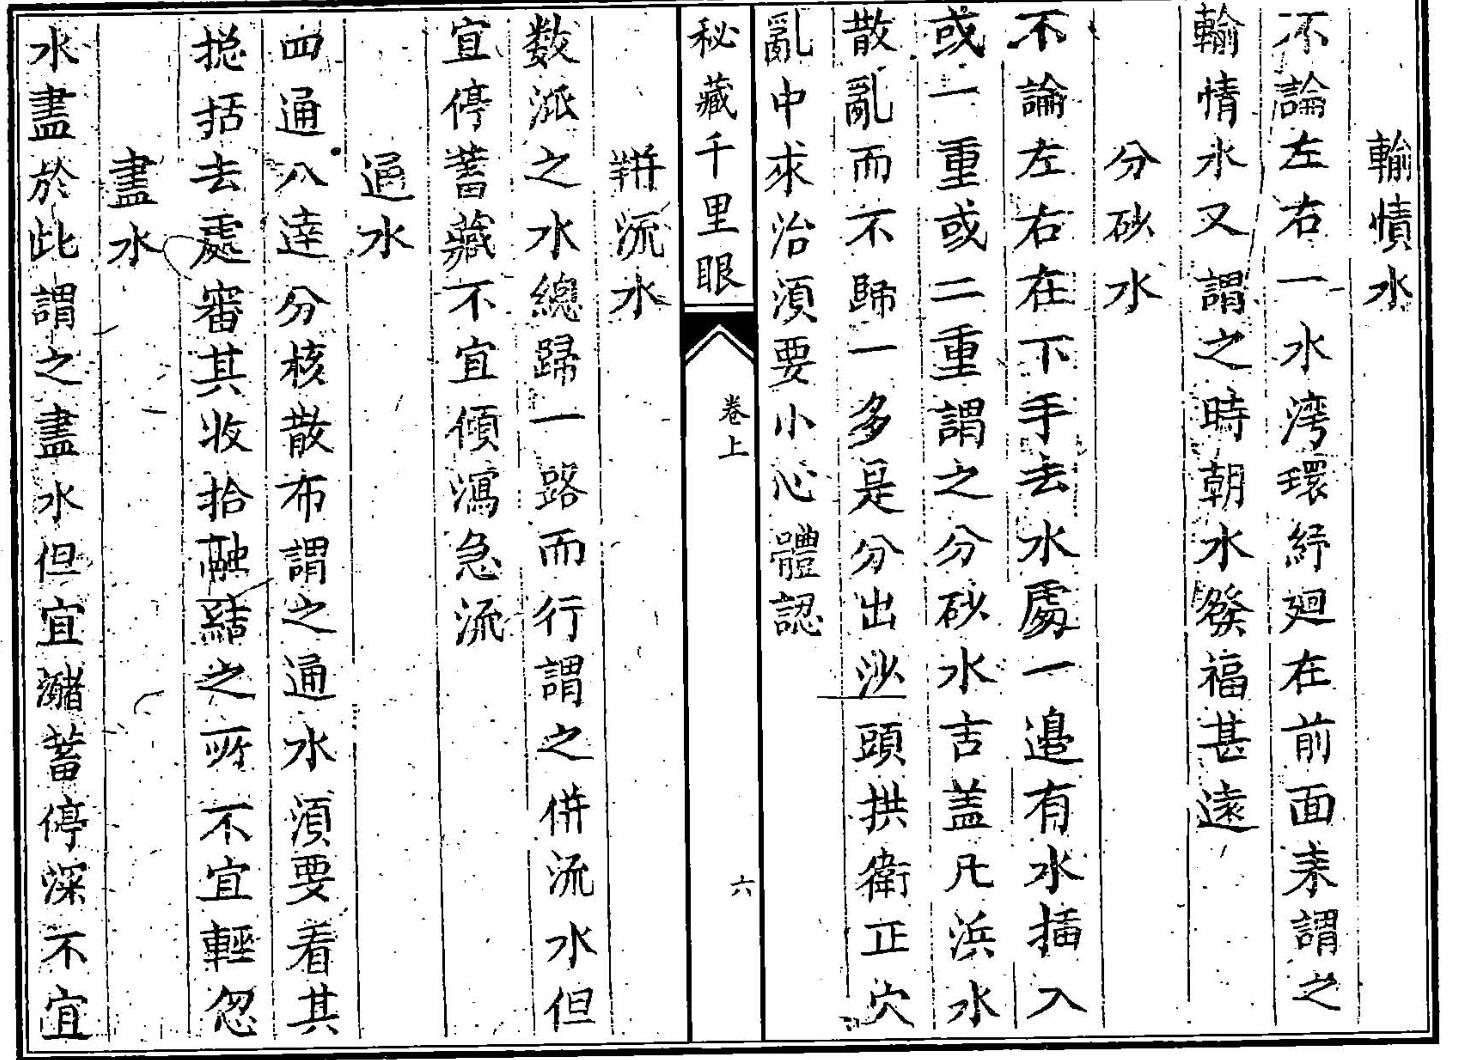 輸情水
不論左右一水湾環紆廻在前面来謂之
輸情水又謂之時朝水發福甚遠
分砂水
不論左右在下手去水處一邉有水插入
或一重或二重謂之分砂水吉盖凡浜水
散亂而不歸一多是分出沙頭拱衛正穴
亂中求治須要小心體認
秘藏千里眼
卷上
六
耕流水
数派之水總歸一路而行謂之併流水但
宜停蓄藏不宜傾瀉急流
通水
四通八達分核散布謂之通水須要着其
揔括去處審其收拾融結之所不宜輕忽
盡水
水盡於此謂之盡水但宜瀦蓄停深不宜